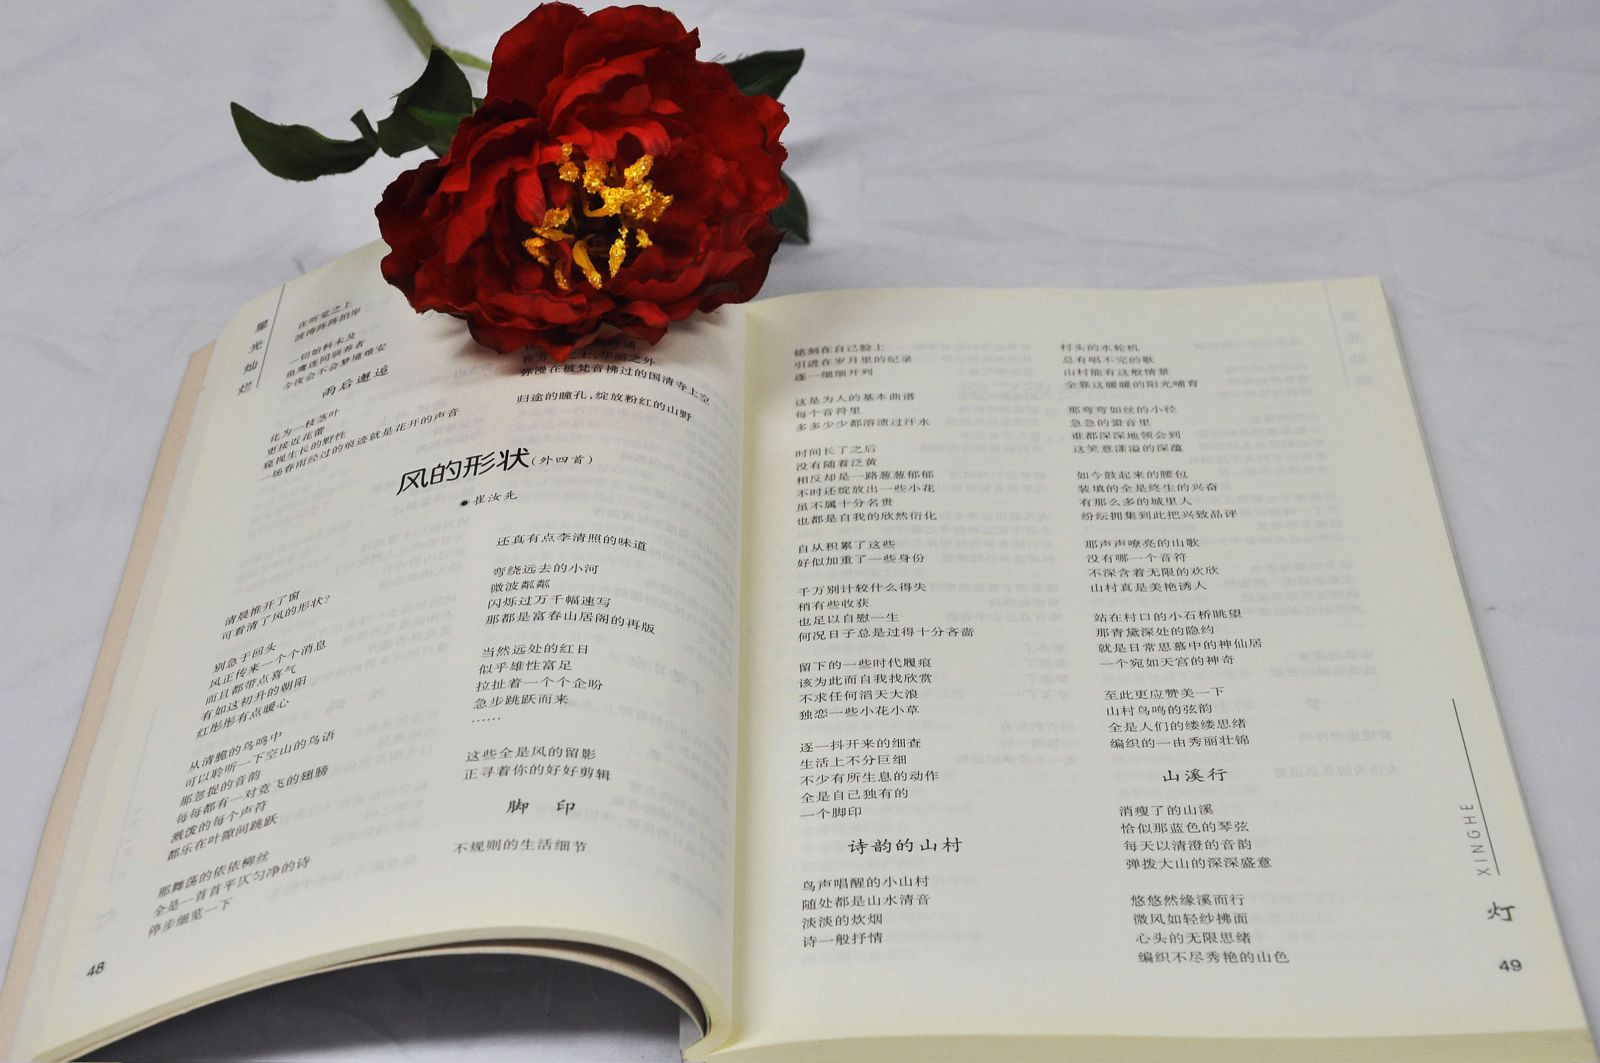 星光灿烂
在听觉之上
波涛阵阵拍岸
一切始料未及
鱼鹰连同驯养者
今夜会不会梦境难安
雨后邂逅
化为一枝茎叶
更接近花蕾
窥视生长的野性
一场春雨经过的痕迹就是花开的声音
弥漫在被梵音拂过的国清寺上空
归途的瞳孔,绽放粉红的山野
风的形状(外四首)
◉崔汝先
清晨推开了窗
可看清了风的形状?
别急于回头
风正传来一个个消息
而且都带点喜气
有如这初升的朝阳
红彤彤有点暖心
从清脆的鸟鸣中
可以聆听一下空山的鸟语
那忽捉的音韵
每每都有一对竞飞的翅膀
溅泼的每个声符
都乐在叶隙间跳跃
那舞荡的依依柳丝
全是一首首平仄匀净的诗
停步细览一下
还真有点李清照的味道
弯绕远去的小河
微波粼粼
闪烁过万千幅速写
那都是富春山居阁的再版
当然远处的红日
似乎雄性富足
拉扯着一个个企盼
急步跳跃而来
……
这些全是风的留影
正寻着你的好好剪辑
脚 印
不规则的生活细节
48
铭刻在自己脸上
引进在岁月里的纪录
逐一细细开列
这是为人的基本曲谱
每个音符里
多多少少都溶渍过汗水
时间长了之后
没有随着泛黄
相反却是一路葱葱郁郁
不时还绽放出一些小花
虽不属十分名贵
也都是自我的欣然衍化
自从积累了这些
好似加重了一些身份
千万别计较什么得失
稍有些收获
也足以自慰一生
何况日子总是过得十分吝啬
留下的一些时代履痕
该为此而自我找欣赏
不求任何滔天大浪
独恋一些小花小草
逐一抖开来的细查
生活上不分巨细
不少有所生息的动作
全是自己独有的
一个脚印
诗韵的山村
鸟声唱醒的小山村
随处都是山水清音
淡淡的炊烟
诗一般抒情
村头的水轮机
总有唱不完的歌
山村能有这般情景
全靠这暖暖的阳光哺育
那弯弯如丝的小径
急急的跫音里
谁都深深地领会到
这笑意漾溢的深蕴
如今鼓起来的腰包
装填的全是终生的兴奋
有那么多的城里人
纷纭拥集到此把兴致品评
那声声嘹亮的山歌
没有哪一个音符
不深含着无限的欢欣
山村真是美艳诱人
站在村口的小石桥眺望
那青黛深处的隐约
就是日常思慕中的神仙居
一个宛如天宫的神奇
至此更应赞美一下
山村鸟鸣的弦韵
全是人们的缕缕思绪
编织的一由秀丽壮锦
山溪行
消瘦了的山溪
恰似那蓝色的琴弦
每天以清澄的音韵
弹拨大山的深深盛意
悠悠然缘溪而行
微风如轻纱拂面
心头的无限思绪
编织不尽秀艳的山色
XINGHE
灯
49